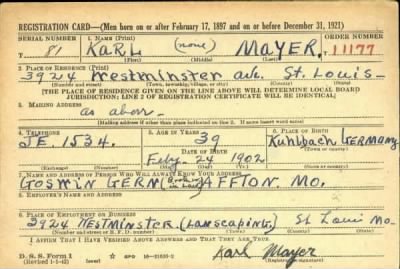 REGISTRATION CARD—(Men born on or after February 17, 1897 and on or before December 31, 1921)
SERIAL NUMBER 1. NAME (Print) ORDER NUMBER
81 KARL (none) MAYER. 11177
(First) (Middle) (Last)
2. PLACE OF RESIDENCE (Print)
3924 Westminster ave. St. Louis—
(Number and street) (Town, township, village, or city) (County) (State)
[THE PLACE OF RESIDENCE GIVEN ON THE LINE ABOVE WILL DETERMINE LOCAL BOARD
JURISDICTION; LINE 2 OF REGISTRATION CERTIFICATE WILL BE IDENTICAL]
3. MAILING ADDRESS
as abov-
[Mailing address if other than place indicated on line 2. If same insert word same]
4. TELEPHONE 5. AGE IN YEARS 6. PLACE OF BIRTH
39
JE. 1534. DATE OF BIRTH Kuhlbach GERMANY
Feby- 24 1902
(Exchange) (Number) (Mo.) (Day) (Yr.) (Town or county) (State or country)
7. NAME AND ADDRESS OF PERSON WHO WILL ALWAYS KNOW YOUR ADDRESS
GOSWIN GERM (Broth in Law) AFFTON. MO.
8. EMPLOYER'S NAME AND ADDRESS
9. PLACE OF EMPLOYMENT OR BUSINESS
3924 WESTMINSTER (LANSCAPING.) St Louis Mo-
(Number and street or R. F. D. number) (Town) (County) (State)
I AFFIRM THAT I HAVE VERIFIED ABOVE ANSWERS AND THAT THEY ARE TRUE.
D. S. S. Form 1 GPO Karl Mayer
(Revised 1-1-42) (over) (Registrant's signature)